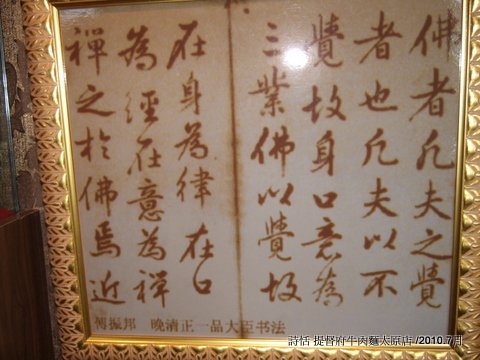 佛者凡夫之覺
者也凡夫以不
覺故身口意為
三業佛以覺故
在身為律在口
為經在意為禪
禪之於佛焉近
傅振邦 晚清正一品大臣书法
詩恬 提督府牛肉麵太原店 /2010.7月